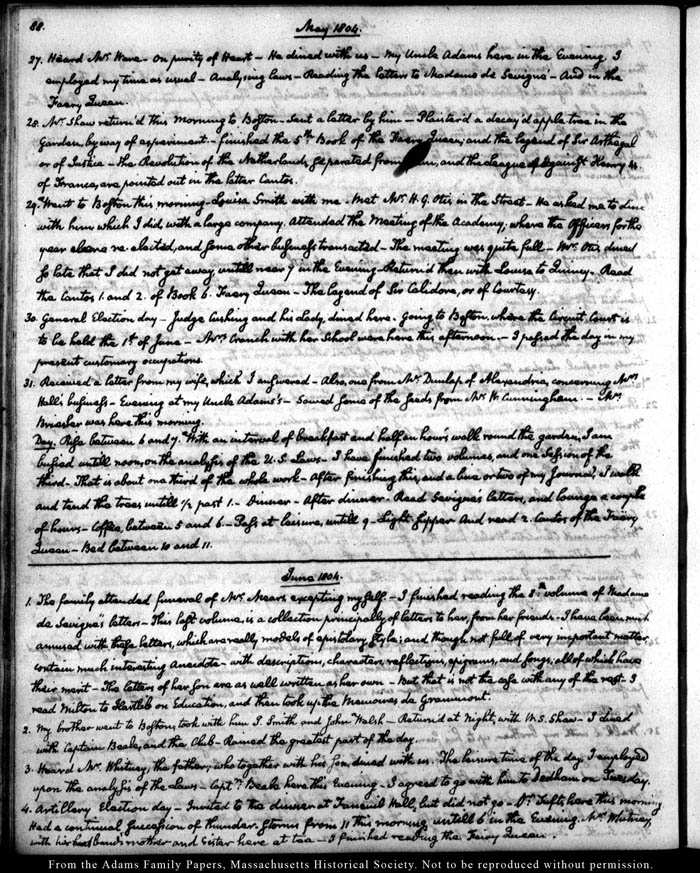 88.
May 1804.
27. Heard Mr. Ware - On purity of Heart - He dined with us - My Uncle Adams here in the Evening. I
employed my time as usual - Analysing laws - Reading the letters to Madame de Sevigné - And in the
Faery Queen.
28. Mr. Shaw return'd this morning to Boston - Sent a letter by him - Plaister'd a decay'd apple tree in the
Garden, by way of experiment - finished the 5th. Book of the Faery Queen, and the legend of Sir Arthegal
or of Justice - The Revolution of the Netherlands, separated from and the league against Henry 4.
of France, are pointed out in the latter Cantos.
29. Went to Boston this morning - Louisa Smith with me - Met Mr. H. G. Otis in the Street - He asked me to dine
with him which I did, with a large company. Attended the Meeting of the Academy, where the Officers for the
year were re-elected, and some other business transacted - The meeting was quite full - Mr. Otis dined
so late that I did not get away untill near 9 in the Evening - Return'd then with Louisa to Quincy. Read
the Cantos 1. and 2. of Book 6. Faery Queen - The legend of Sir Calidore, or of Courtesy.
30. General Election day - Judge Cushing and his Lady, dined here. Going to Boston, where the Circuit Court is
to be held the 1st. of June - Mrs. Cranch with her School were here this afternoon - I passed the day in my
present customary occupations.
31. Received a letter from my wife, which I answered - Also, one from Mr. Dunlap of Alexandria, concerning Mrs.
Hall's business - Evening at my Uncle Adams's - Sowed some of the seeds from Mr. W. Cunningham. - Mrs.
Briesler was here this morning.
Day. Rise between 6 and 7. With an interval of breakfast and half an hour's walk round the garden, I am
busied untill noon, on the analysis of the U.S. Laws - I have finished two volumes, and one Session of the
third - That is about one third of the whole work - After finishing this, and a line or two of my Journal, I walk
and tend the trees untill 1/2 past 1. - Dinner - After dinner - Read Sevigne's letters, and lounge a couple
of hours - Coffee, between 5 and 6 - Pass at leisure, untill 9 - Light supper And read 2. Cantos of the Faery
Queen - Bed between 10 and 11.
June 1804.
1. The family attended funeral of Mrs. Mears, excepting myself. - I finished reading the 8th. volume of Madame
de Sevigne's letters - This last volume, is a collection principally of letters to her, from her friends - I have been much
amused with these letters, which are really models of epistolary style; and though not full of very important matter,
contain much interesting Anecdote - with descriptions, characters, reflections, epigrams, and songs, all of which have
their merit - The letters of her Son are as well written as her own - But that is not the case with any of the rest - I
read Milton to Hartlib on Education, and then took up the Memoires de Grammont.
2. My brother went to Boston; took with him S. Smith and John Walsh - Return'd at Night, with W. S. Shaw - I dined
with Captain Beale, and the Club - Rained the greatest part of the day.
3. Heard Mr. Whitney, the father, who together with his Son, dined with us. The leisure time of the day I employed
upon the analysis of the Laws - Captn. Beale here this Evening - I agreed to go with him to Dedham on Tuesday.
4. Artillery Election day - Invited to the dinner at Faneuil Hall, but did not go - Dr. Tufts, here this morning
Had a continual succession of thunder-storms from 11 this morning untill 6 in the Evening. Mrs. Whitney,
with her husband's mother and Sister here at tea - I finished reading the Fairy Queen.
From the Adams Family Papers, Massachusetts Historical Society. Not to be reproduced without permission.